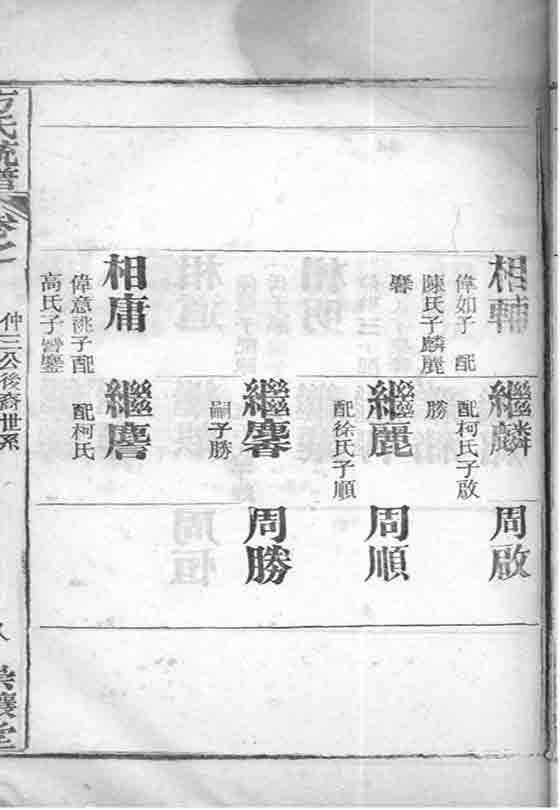 相輔
偉如子 配
陳氏子麟麗
繼麟
配柯氏子啟
勝
周啟
繼麗
配徐氏子順
周順
繼
嗣子勝
周勝
相庸
偉意祧子配
高氏子
繼
配柯氏
氏統譜
卷之
仲三公後裔世系